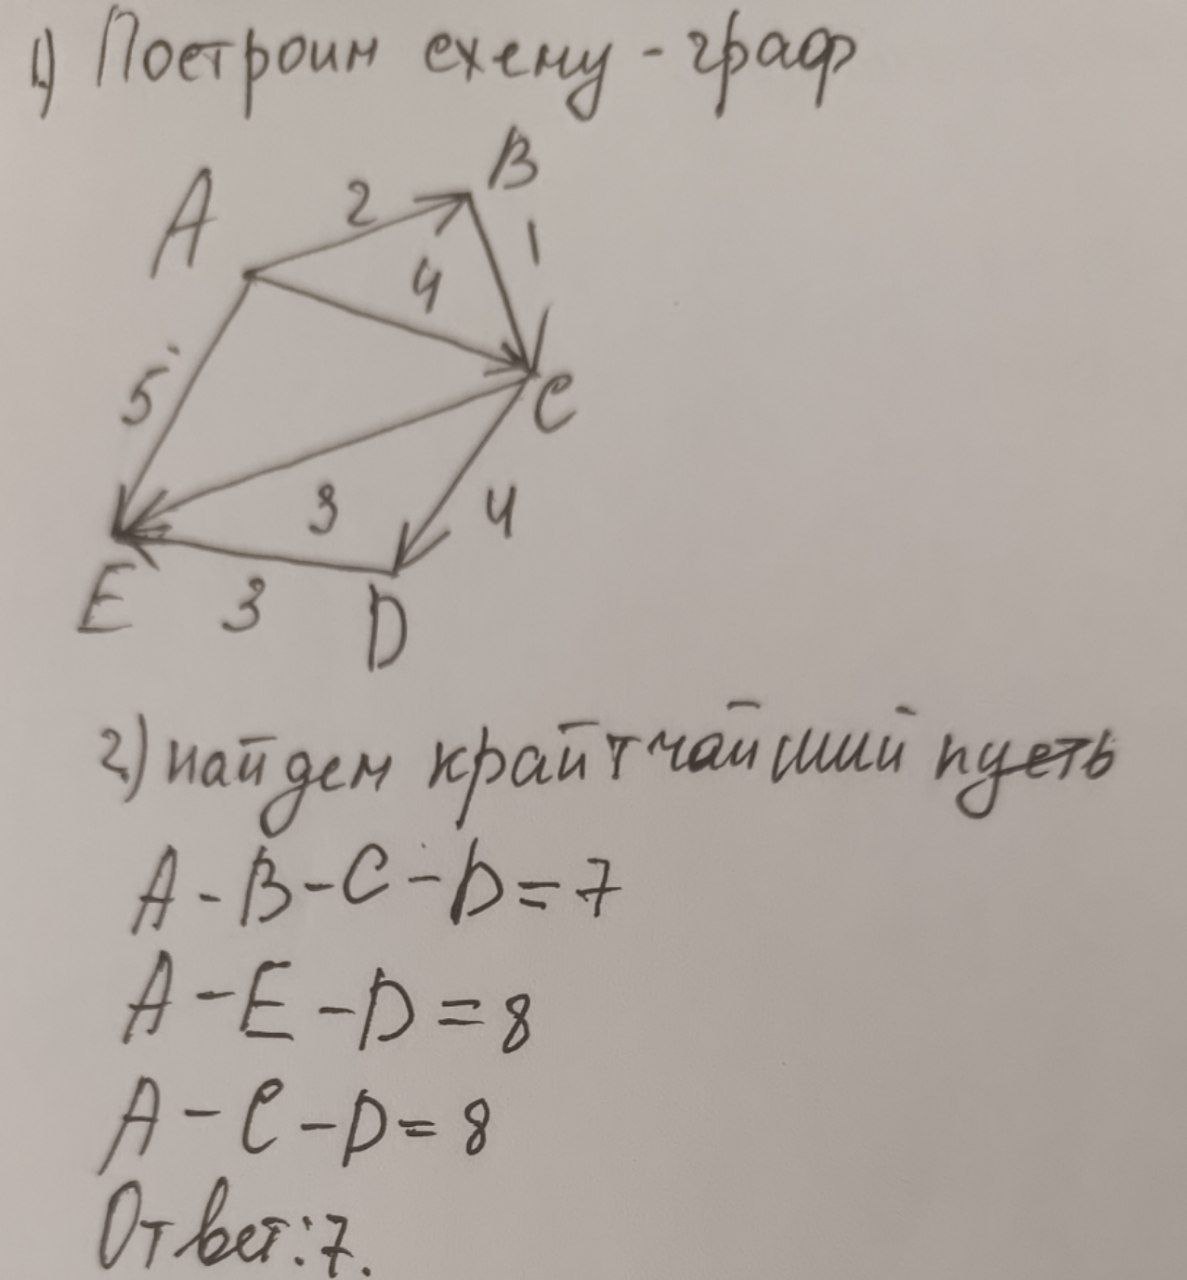 1.) Построим схему - граф
B
A
2
1
4
5
C
3
4
E
3
D
2.) найдем крайтчайший путь
A - B - C - D = 7
A - E - D = 8
A - C - D = 8
Ответ: 7.